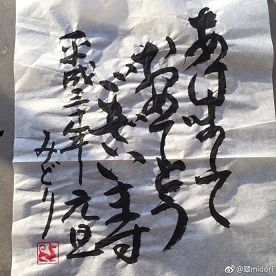 あけまして
おめでとう
ござい寿
平成三十年 元旦
みどり
@翠midori